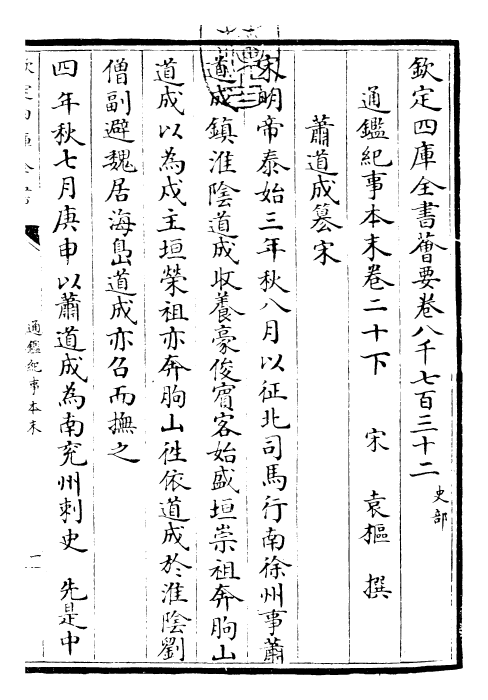 欽定四庫全書薈要卷八千七百三十二
史部
通鑑紀事本末卷二十下
宋 袁樞 撰
蕭道成篡宋
宋明帝泰始三年秋八月以征北司馬行南徐州事蕭
道成鎮淮陰道成收養豪俊賓客始盛垣崇祖奔朐山
道成以為戍主垣榮祖亦奔朐山徃依道成於淮陰劉
僧副避魏居海島道成亦召而撫之
四年秋七月庚申以蕭道成為南兖州刺史 先是中
通鑑紀事本末
一